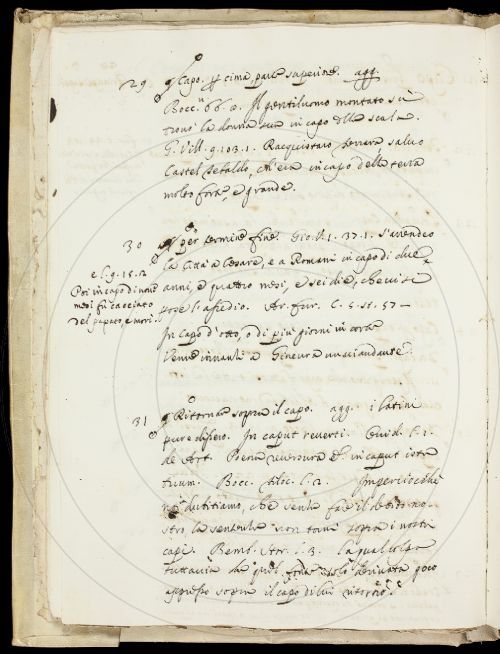 29 Capo. p cima, parte superiore. agg.
Bocc. n. 66. Il gentiluomo montato sù
trovò la donna sua in capo della scala.
G. Vill. 9. 103. 1. Racquistaro Ferrara salvo
Castel Tedaldo, ch'era in capo della terra
molto forte e grande.
30 per termine fine. Gio. V. 1. 37. 1. s'arrendeo
la Città a Cesare, e a Romani in capo di due
anni, e quattro mesi, e sei die, che vi si
pose l'assedio. Ar. fur. C. 5. st. 57
In capo d'otto, o di più giorni in corte
Venne innanti a Ginevra un viandante
e l. 9. 15. 2
Poi in capo di nove
mesi fu cacciato
del papato, e morì.
31 Ritornare sopra il capo. agg. i latini
pure dissero. In caput reverti. Ovid. l. 1.
de Art. in caput ista
tuum. Bocc. l. 2. Imperciocchè
noi dubitiamo, che senza fare il debito no-
stro la sentenza non torni sopra i nostri
capi. Bemb. Stor. l. 3. la qual colpa
tuttavia da derivata poco
appresso sopra il capo di lui ritornò